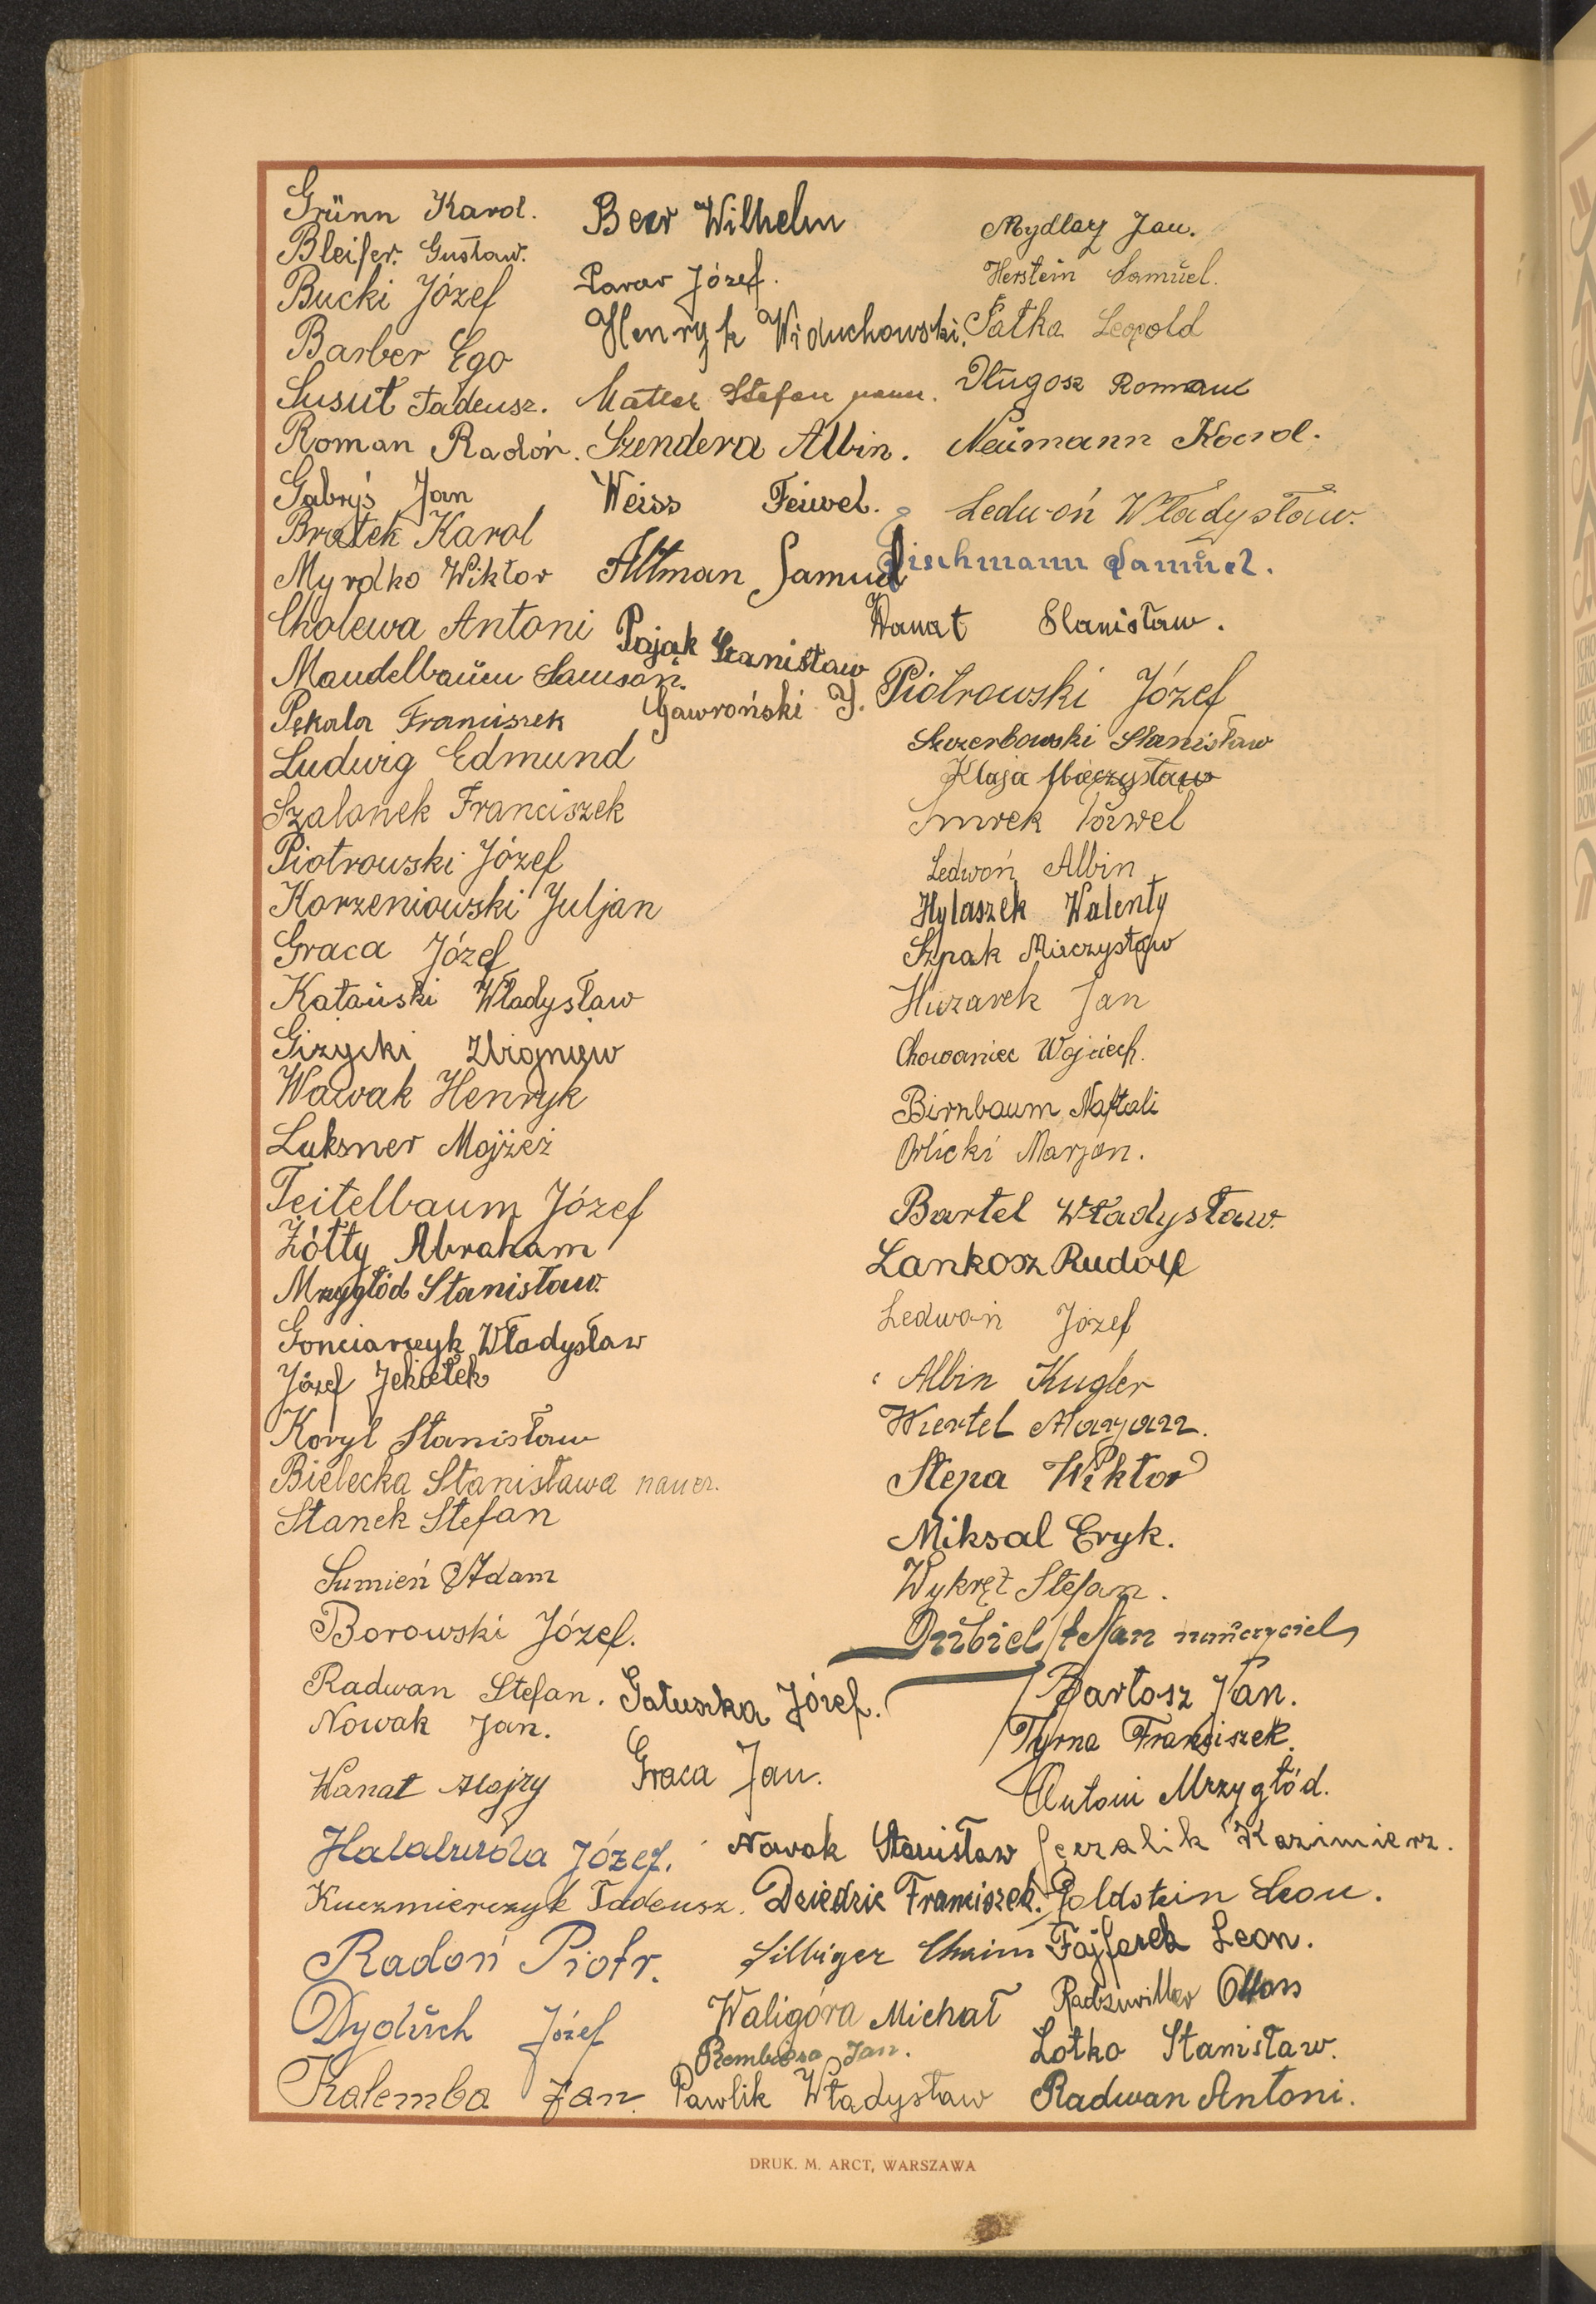 Grünn Karol.
Bleifer Gustaw.
Bucki Józef
Barber Ego
Susuł Tadeusz.
Roman Radoń.
Gabryś Jan
Bratek Karol
Myrdko Wiktor
Cholewa Antoni
Mandelbaŭm Samson.
Pękala Franciszek
Ludwig Edmund
Szalanek Franciszek
Piotrowski Józef
Korzeniowski Juljan
Graca Józef
Katański Władysław
Giżycki Zbigniew
Wawak Henryk
Luksner Mojżeż
Teitelbaum Józef
Żółty Abraham
Mrzygłód Stanisław.
Gonciarczyk Władysław
Józef Jekiełek
Koryl Stanisław
Bielecka Stanisława naucz.
Stanek Stefan
Sumień Adam
Borowski Józef.
Radwan Stefan.
Nowak Jan.
Wanat Alojzy
Józef.
Kuczmierczyk Tadeusz.
Radoń Piotr.
Dydŭch Józef
Kalemba Jan.
Beer Wilhelm
Józef.
Henryk Widuchowski.
Stefan
Szendera Albin.
Weiss Feiwel.
Altman Samuel
Pająk Stanisław
Gawroński J.
Gałuszka Józef.
Graca Jan.
Nowak Stanisław
Dziedzic Franciszek.
Silbiger Chaim
Waligóra Michał
Jan.
Pawlik Władysław
Mydlarz Jan.
Herstein Samŭel.
Pałka Leopold
Długosz Roman
Neŭmann Karol.
Ledwoń Władysław.
Fischmann Samŭel.
Wanat Stanisław.
Piotrowski Józef
Szczerbowski Stanisław
Klaja Mieczysław
Smrek Paweł
Ledwoń Albin
Hylaszek Walenty
Szpak Mieczysław
Huzarek Jan
Chowaniec Wojciech.
Birnbaum Naftali
Orlicki Marjan.
Bartel Władysław.
Lankosz Rudolf
Ledwoń Józef
Albin Kugler
Wiertel Maryan.
Stepa Wiktor
Miksal Eryk.
Wykręt Stefan.
Dŭbiel Stefan naŭczyciel
Bartosz Jan.
Tyrna Franciszek.
Antoni Mrzygłód.
Kazimierz.
Goldstein Leon.
Fajferek Leon.
Lotko Stanisław.
Radwan Antoni.
DRUK. M. ARCT, WARSZAWA